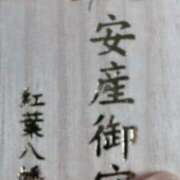 安産御守
紅葉八幡